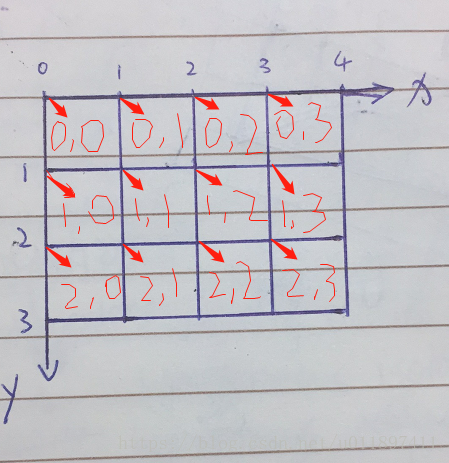 0 1 2 3 4 X
0,0 0,1 0,2 0,3
1
1,0 1,1 1,2 1,3
2
2,0 2,1 2,2 2,3
3
Y